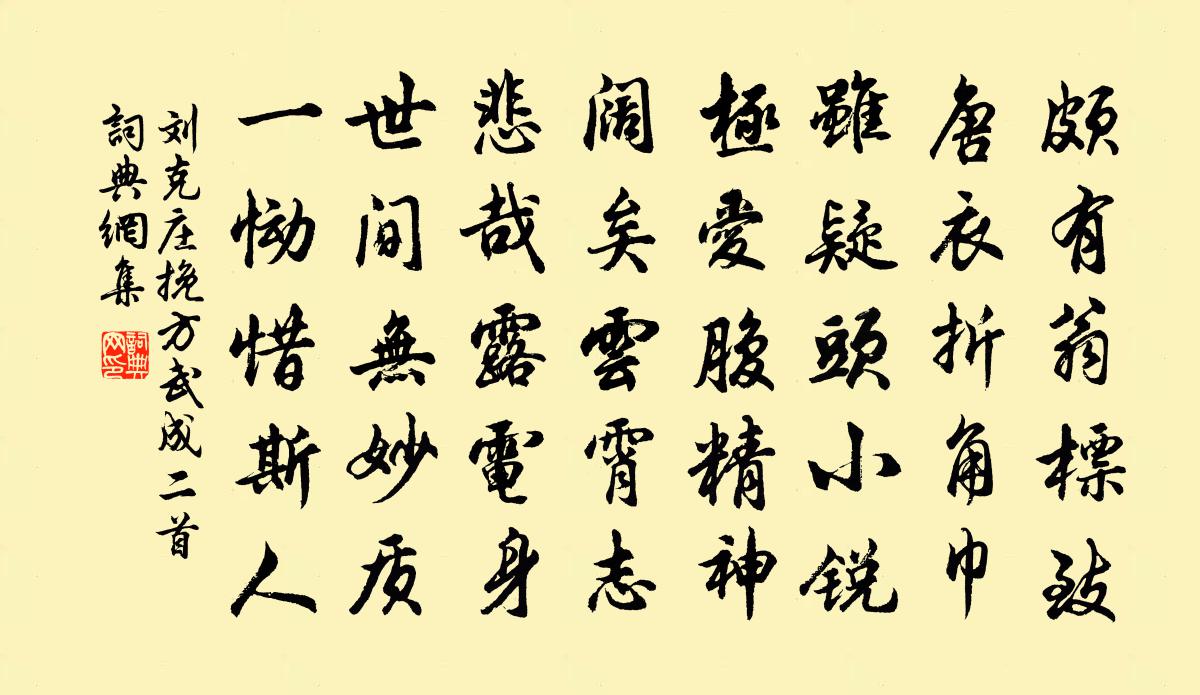 颇有翁標致
唐衣折角巾
雖疑頭小锐
極愛腹精神
阔矣雲霄志
悲哉露電身
世间無妙质
一恸惜斯人
刘克庄挽方武成二首
詞典網集
詞典网印